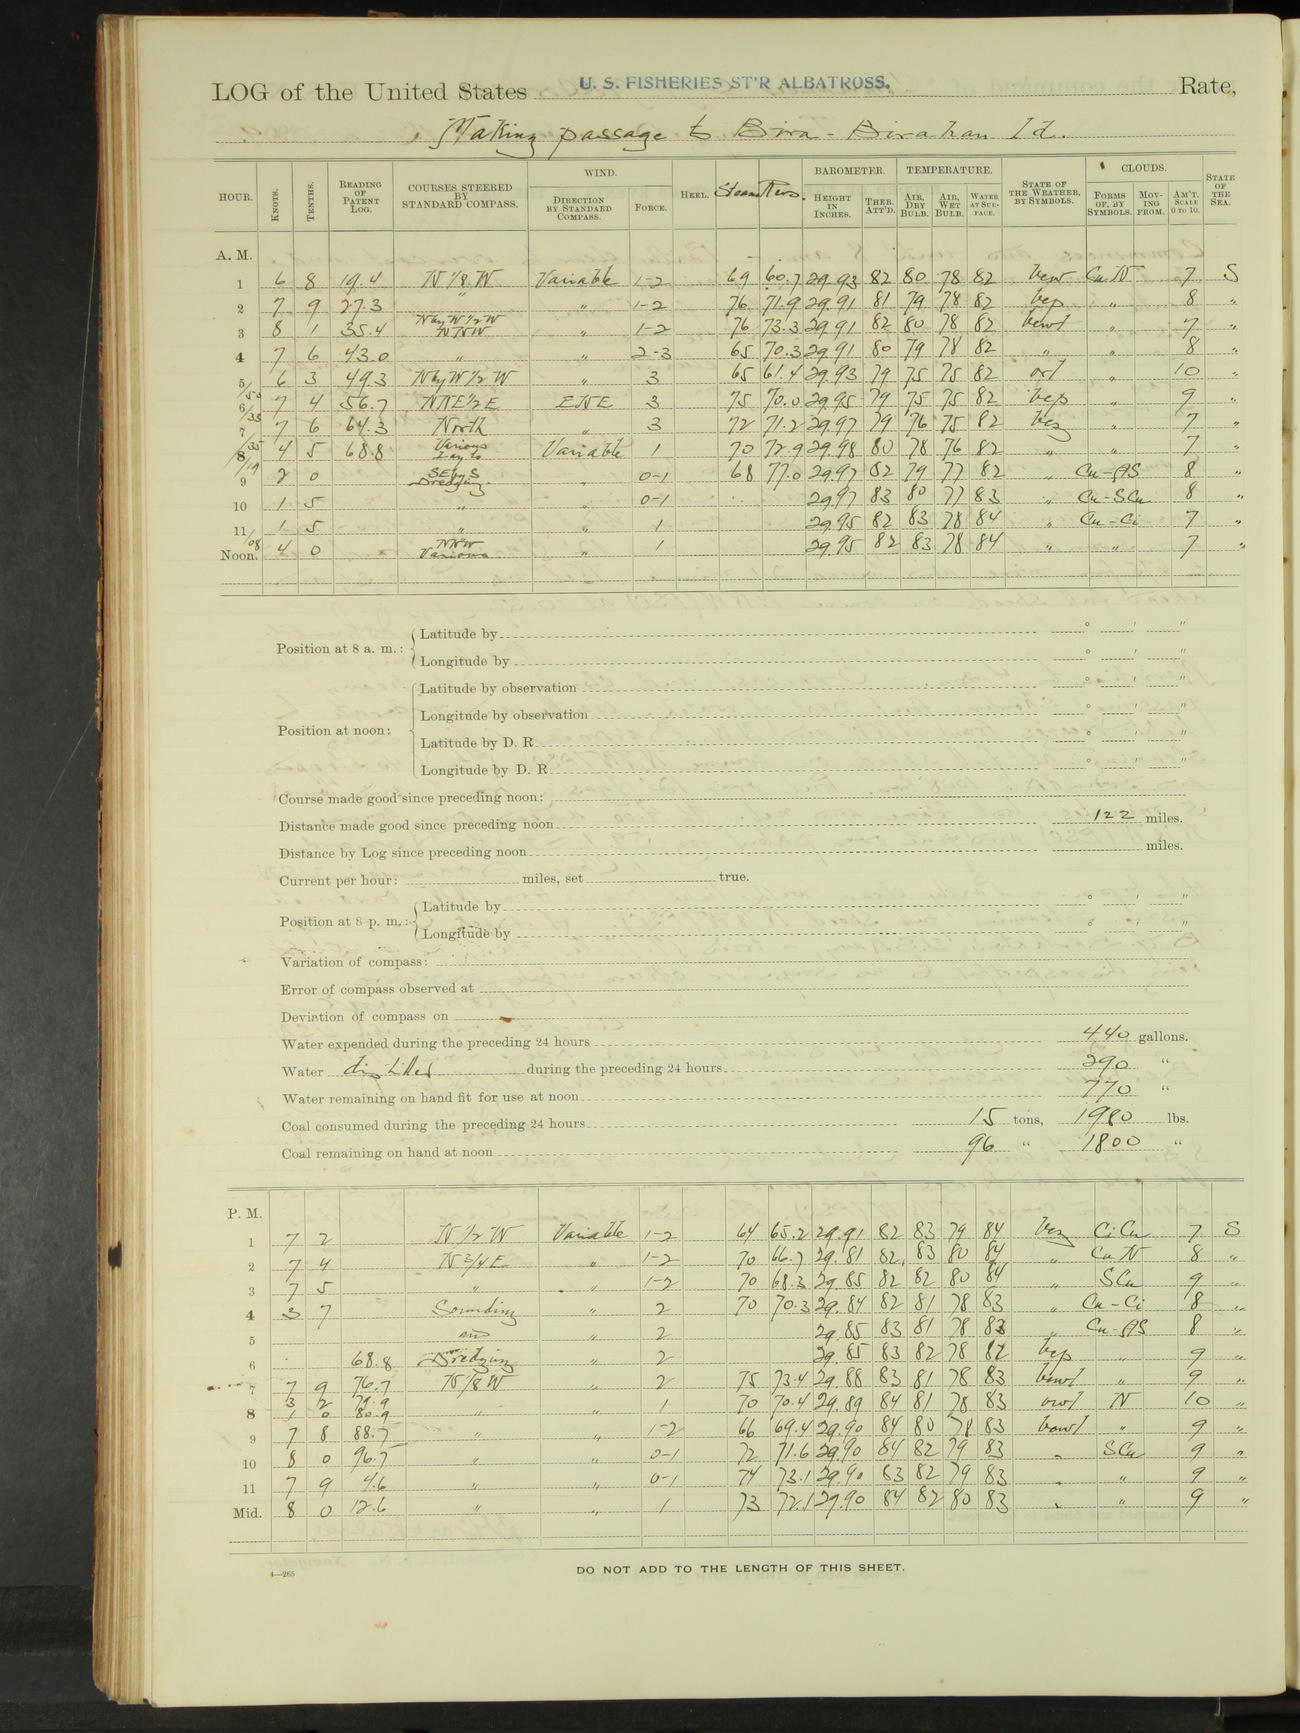 LOG of the United States U. S. FISHERIES ST'R ALBATROSS. Rate,
Making passage to Bira-Birahan Id.
HOUR. KNOTS. TENTHS. READING OF PATENT LOG. COURSES STEERED BY STANDARD COMPASS. WIND. DIRECTION BY STANDARD COMPASS. FORCE. HEEL. Steam Revs. BAROMETER. HEIGHT IN INCHES. THER. ATT'D. TEMPERATURE. AIR, DRY BULB. AIR, WET BULB. WATER AT SURFACE. STATE OF THE WEATHER, BY SYMBOLS. CLOUDS. FORMS OF, BY SYMBOLS. MOVING FROM. AM'T. SCALE 0 TO 10. STATE OF THE SEA.
A. M.
1 6 8 19.4 N 1/8 W Variable 1-2 69 60.7 29.93 82 80 78 82 Cu N 7 S
2 7 9 27.3 " " 1-2 76 71.9 29.91 81 79 78 82 bcp " 8 "
3 8 1 35.4 N by W 1/2 W NNW " 1-2 76 73.3 29.91 82 80 78 82 " 7 "
4 7 6 43.0 " " 2-3 65 70.3 29.91 80 79 78 82 " " 8 "
5/50 6 3 49.3 N by W 1/2 W " 3 65 61.4 29.93 79 75 75 82 " 10 "
6/35 7 4 56.7 NNE 1/2 E ENE 3 75 70.0 29.95 79 75 75 82 bcp " 9 "
7 7 6 64.3 North " 3 72 71.2 29.97 79 76 75 82 bcz " 7 "
8/35 4 5 68.8 Various Lay to Variable 1 70 72.9 29.98 80 78 76 82 " " 7 "
9/19 2 0 SE by S Dredging " 0-1 68 77.0 29.97 82 79 77 82 " Cu-AS 8 "
10 1 5 " " 0-1 29.97 83 80 77 83 " Cu-SCu 8 "
11 1 5 " " 1 29.95 82 83 78 84 " Cu-Ci 7 "
Noon./08 4 0 NNW Various " 1 29.95 82 83 78 84 " " 7 "
Position at 8 a. m.: Latitude by ° ' "
Longitude by ° ' "
Position at noon: Latitude by observation ° ' "
Longitude by observation ° ' "
Latitude by D. R. ° ' "
Longitude by D. R. ° ' "
Course made good since preceding noon:
Distance made good since preceding noon 122 miles.
Distance by Log since preceding noon miles.
Current per hour: miles, set true.
Position at 8 p. m.: Latitude by ° ' "
Longitude by ° ' "
Variation of compass:
Error of compass observed at
Deviation of compass on
Water expended during the preceding 24 hours 440 gallons.
Water distilled during the preceding 24 hours 290 "
Water remaining on hand fit for use at noon 770 "
Coal consumed during the preceding 24 hours 15 tons, 1980 lbs.
Coal remaining on hand at noon 96 " 1800 "
P. M.
1 7 2 N 1/2 W Variable 1-2 64 65.2 29.91 82 83 79 84 bcz Ci Cu 7 S
2 7 4 N 3/4 E " 1-2 70 66.7 29.81 82 83 80 84 " Cu N 8 "
3 7 5 " " 1-2 70 68.3 29.85 82 82 80 84 " SCu 9 "
4 3 7 Sounding " 2 70 70.3 29.84 82 81 78 83 " Cu-Ci 8 "
5 and " 2 29.85 83 81 78 83 " Cu-AS 8 "
6 68.8 Dredging " 2 29.85 83 82 78 82 bcp " 9 "
7 7 9 76.7 N 1/8 W " 2 75 73.4 29.88 83 81 78 83 " 9 "
8 3 2 79.9 1 0 80.9 " " 1 70 70.4 29.89 84 81 78 83 N 10 "
9 7 8 88.7 " " 1-2 66 69.4 29.90 84 80 78 83 " 9 "
10 8 0 96.7 " " 0-1 72 71.6 29.90 84 82 79 83 " SCu 9 "
11 7 9 4.6 " " 0-1 74 73.1 29.90 83 82 79 83 " " 9 "
Mid. 8 0 12.6 " " 1 73 72.1 29.90 84 82 80 83 " " 9 "
4—265
DO NOT ADD TO THE LENGTH OF THIS SHEET.